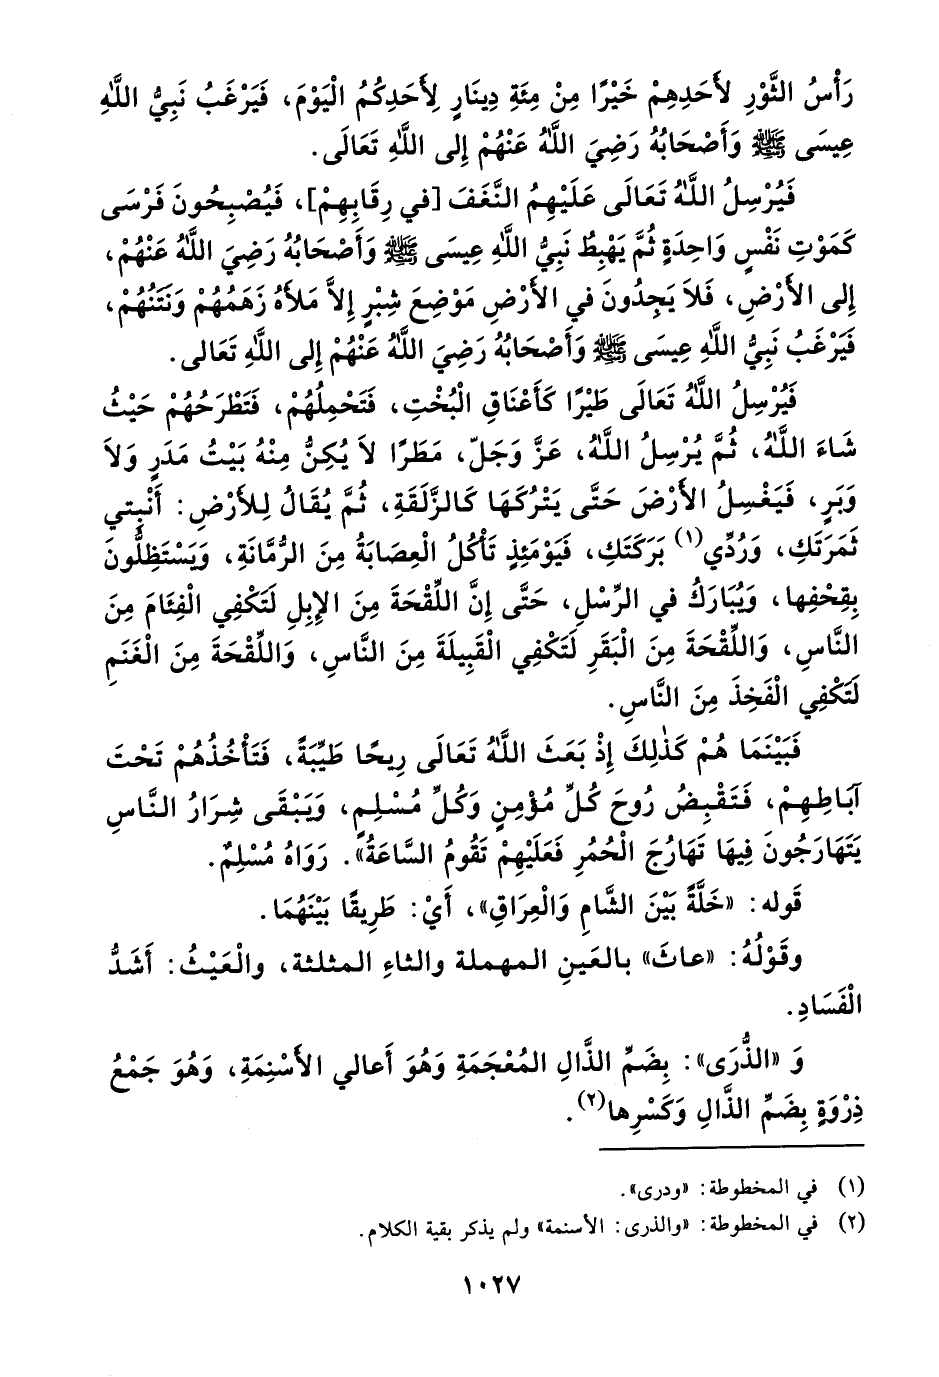 رَأْسُ الثَّوْرِ لأَحَدِهِمْ خَيْرًا مِنْ مِئَةِ دِينَارٍ لِأَحَدِكُمُ الْيَوْمَ، فَيَرْغَبُ نَبِيُّ اللَّهِ
عِيسَى ﷺ وَأَصْحَابُهُ رَضِيَ اللَّهُ عَنْهُمْ إِلى اللَّهِ تَعَالَى.
فَيُرْسِلُ اللَّهُ تَعَالَى عَلَيْهِمُ النَّغَفَ [في رِقَابِهِمْ]، فَيُصْبِحُونَ فَرْسَى
كَمَوْتِ نَفْسٍ وَاحِدَةٍ ثُمَّ يَهْبِطُ نَبِيُّ اللَّهِ عِيسَى ﷺ وَأَصْحَابُهُ رَضِيَ اللَّهُ عَنْهُمْ،
إِلى الأَرْضِ، فَلاَ يَجِدُونَ في الأَرْضِ مَوْضِعَ شِبْرٍ إِلاَّ مَلأَهُ زَهَمُهُمْ وَنَتَنُهُمْ،
فَيَرْغَبُ نَبِيُّ اللَّهِ عِيسَى ﷺ وَأَصْحَابُهُ رَضِيَ اللَّهُ عَنْهُمْ إِلى اللَّهِ تَعَالى.
فَيُرْسِلُ اللَّهُ تَعَالَى طَيْرًا كَأَعْنَاقِ الْبُخْتِ، فَتَحْمِلُهُمْ، فَتَطْرَحُهُمْ حَيْثُ
شَاءَ اللَّهُ، ثُمَّ يُرْسِلُ اللَّهُ، عَزَّ وَجَلّ، مَطَرًا لاَ يُكِنُّ مِنْهُ بَيْتُ مَدَرٍ وَلاَ
وَبَرٍ، فَيَغْسِلُ الأَرْضَ حَتَّى يَتْرُكَهَا كَالزَّلَقَةِ، ثُمَّ يُقَالُ لِلأَرْضِ: أَنْبِتي
ثَمَرَتَكِ، وَرُدِّي(١) بَرَكَتَكِ، فَيَوْمَئِذٍ تَأْكُلُ الْعِصَابَةُ مِنَ الرُّمَّانَةِ، وَيَسْتَظِلُّونَ
بِقِحْفِها، وَيُبَارَكُ في الرِّسْلِ، حَتَّى إِنَّ اللِّقْحَةَ مِنَ الإِبِلِ لَتَكْفِي الْفِئَامَ مِنَ
النَّاسِ، وَاللِّقْحَةَ مِنَ الْبَقَرِ لَتَكْفِي الْقَبِيلَةَ مِنَ النَّاسِ، وَاللِّقْحَةَ مِنَ الْغَنَمِ
لَتَكْفِي الْفَخِذَ مِنَ النَّاسِ.
فَبَيْنَمَا هُمْ كَذٰلِكَ إِذْ بَعَثَ اللَّهُ تَعَالَى رِيحًا طَيِّبَةً، فَتَأْخُذُهُمْ تَحْتَ
آبَاطِهِمْ، فَتَقْبِضُ رُوحَ كُلِّ مُؤْمِنٍ وَكُلِّ مُسْلِمٍ، وَيَبْقَى شِرَارُ النَّاسِ
يَتَهَارَجُونَ فِيهَا تَهَارُجَ الْحُمُرِ فَعَلَيْهِمْ تَقُومُ السَّاعَةُ». رَوَاهُ مُسْلِمٌ.
قَوله: «خَلَّةً بَيْنَ الشَّامِ وَالْعِرَاقِ»، أَيْ: طَرِيقًا بَيْنَهُمَا.
وقَوْلُهُ: «عاثَ» بالعَينِ المهملة والثاءِ المثلثة، والْعَيْثُ: أَشَدُّ
الْفَسَادِ.
وَ «الذُّرَى»: بِضَمِّ الذَّالِ المُعْجَمَةِ وَهُوَ أَعالي الأَسْنِمَةِ، وَهُوَ جَمْعُ
ذِرْوَةٍ بِضَمِّ الذَّالِ وَكَسْرِها(٢).
(١) في المخطوطة: «ودرى».
(٢) في المخطوطة: «والذرى: الأسنمة» ولم يذكر بقية الكلام.
١٠٢٧